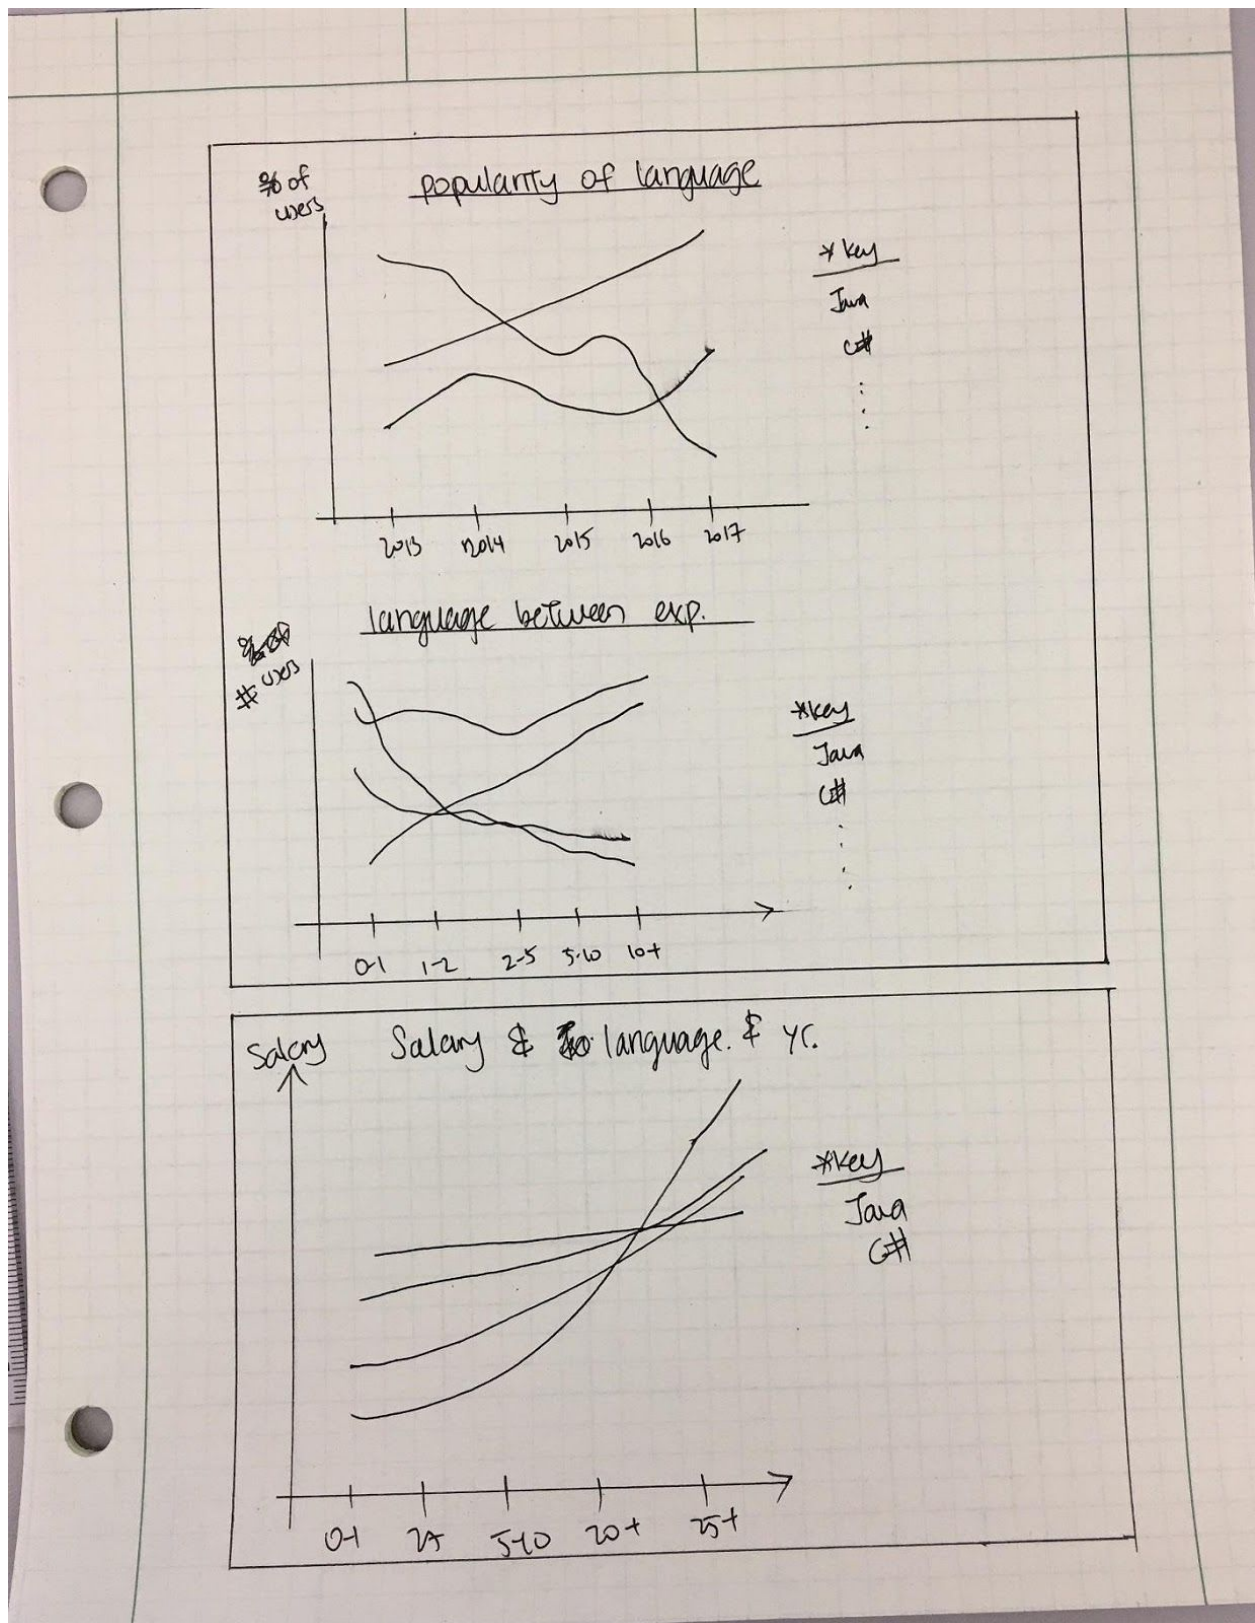 % of
users
popularity of language
*key
Java
C#
2013 2014 2015 2016 2017
language between exp.
# users
*key
Java
C#
0-1 1-2 2-5 5-10 10+
Salary
Salary & language. & yr.
*key
Java
C#
0-1 5-10 20+ 25+